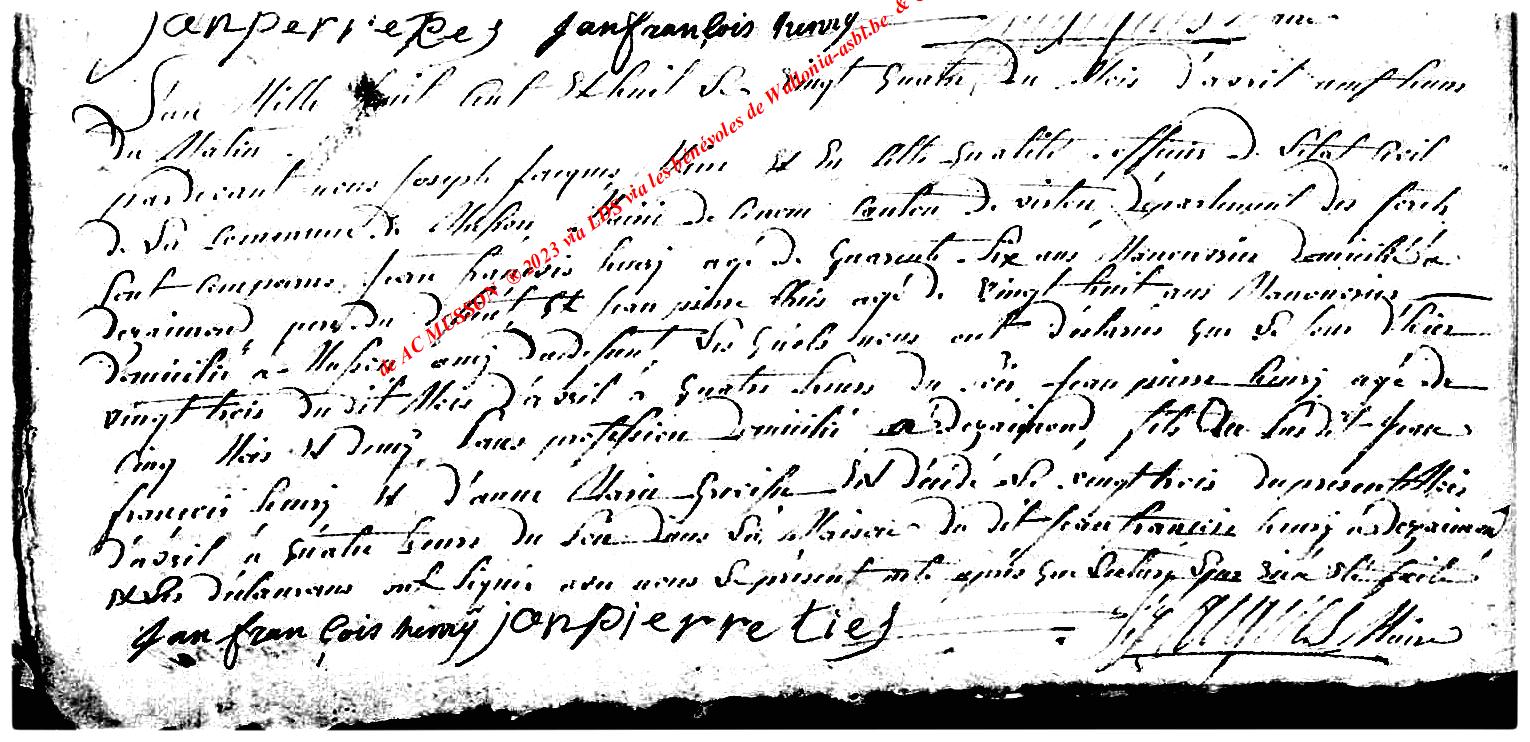 janpierreties janfrançois henry
L'an Mille huit Cent Et huit Le vingt quatre du Mois d'avril neuf heures
du Matin
pardevant nous Joseph Jacques Maire Et En Cette qualité officier De L'Etat Civil
de La Commune de Musson, Mairie De Ce nom Canton De virton, Département des forets
Sont Comparus Jean françois henry agé De quarente Six ans Manouvrier Domicilié à
Dezaimond pere du Défunt Et Jean pierre this agé De vingt huit ans Manouvrier
Domicilié à Musson amy du défunt, Les quels nous ont déclarés que Le jour d'hier
vingt trois du dit Mois d'avril à quatre heures du soir Jean pierre henry agé De
Cinq Mois Et demy, Sans profession Domicilié à Dezaimond, fils Du Susdit Jean
françois henry Et d'anne Marie Est décédé Le vingt trois du present Mois
d'avril à quatre heures du Soir Dans La Maison du dit Jean françois henry à Dezaimond
Et Les déclarans ont Signés avec nous Le présent acte après que Lecture a été faite
jan françois henry janpierre ties Maire
de AC MUSSON ® 2023 via LDS via les bénévoles de Wallonia-asbl.be. &